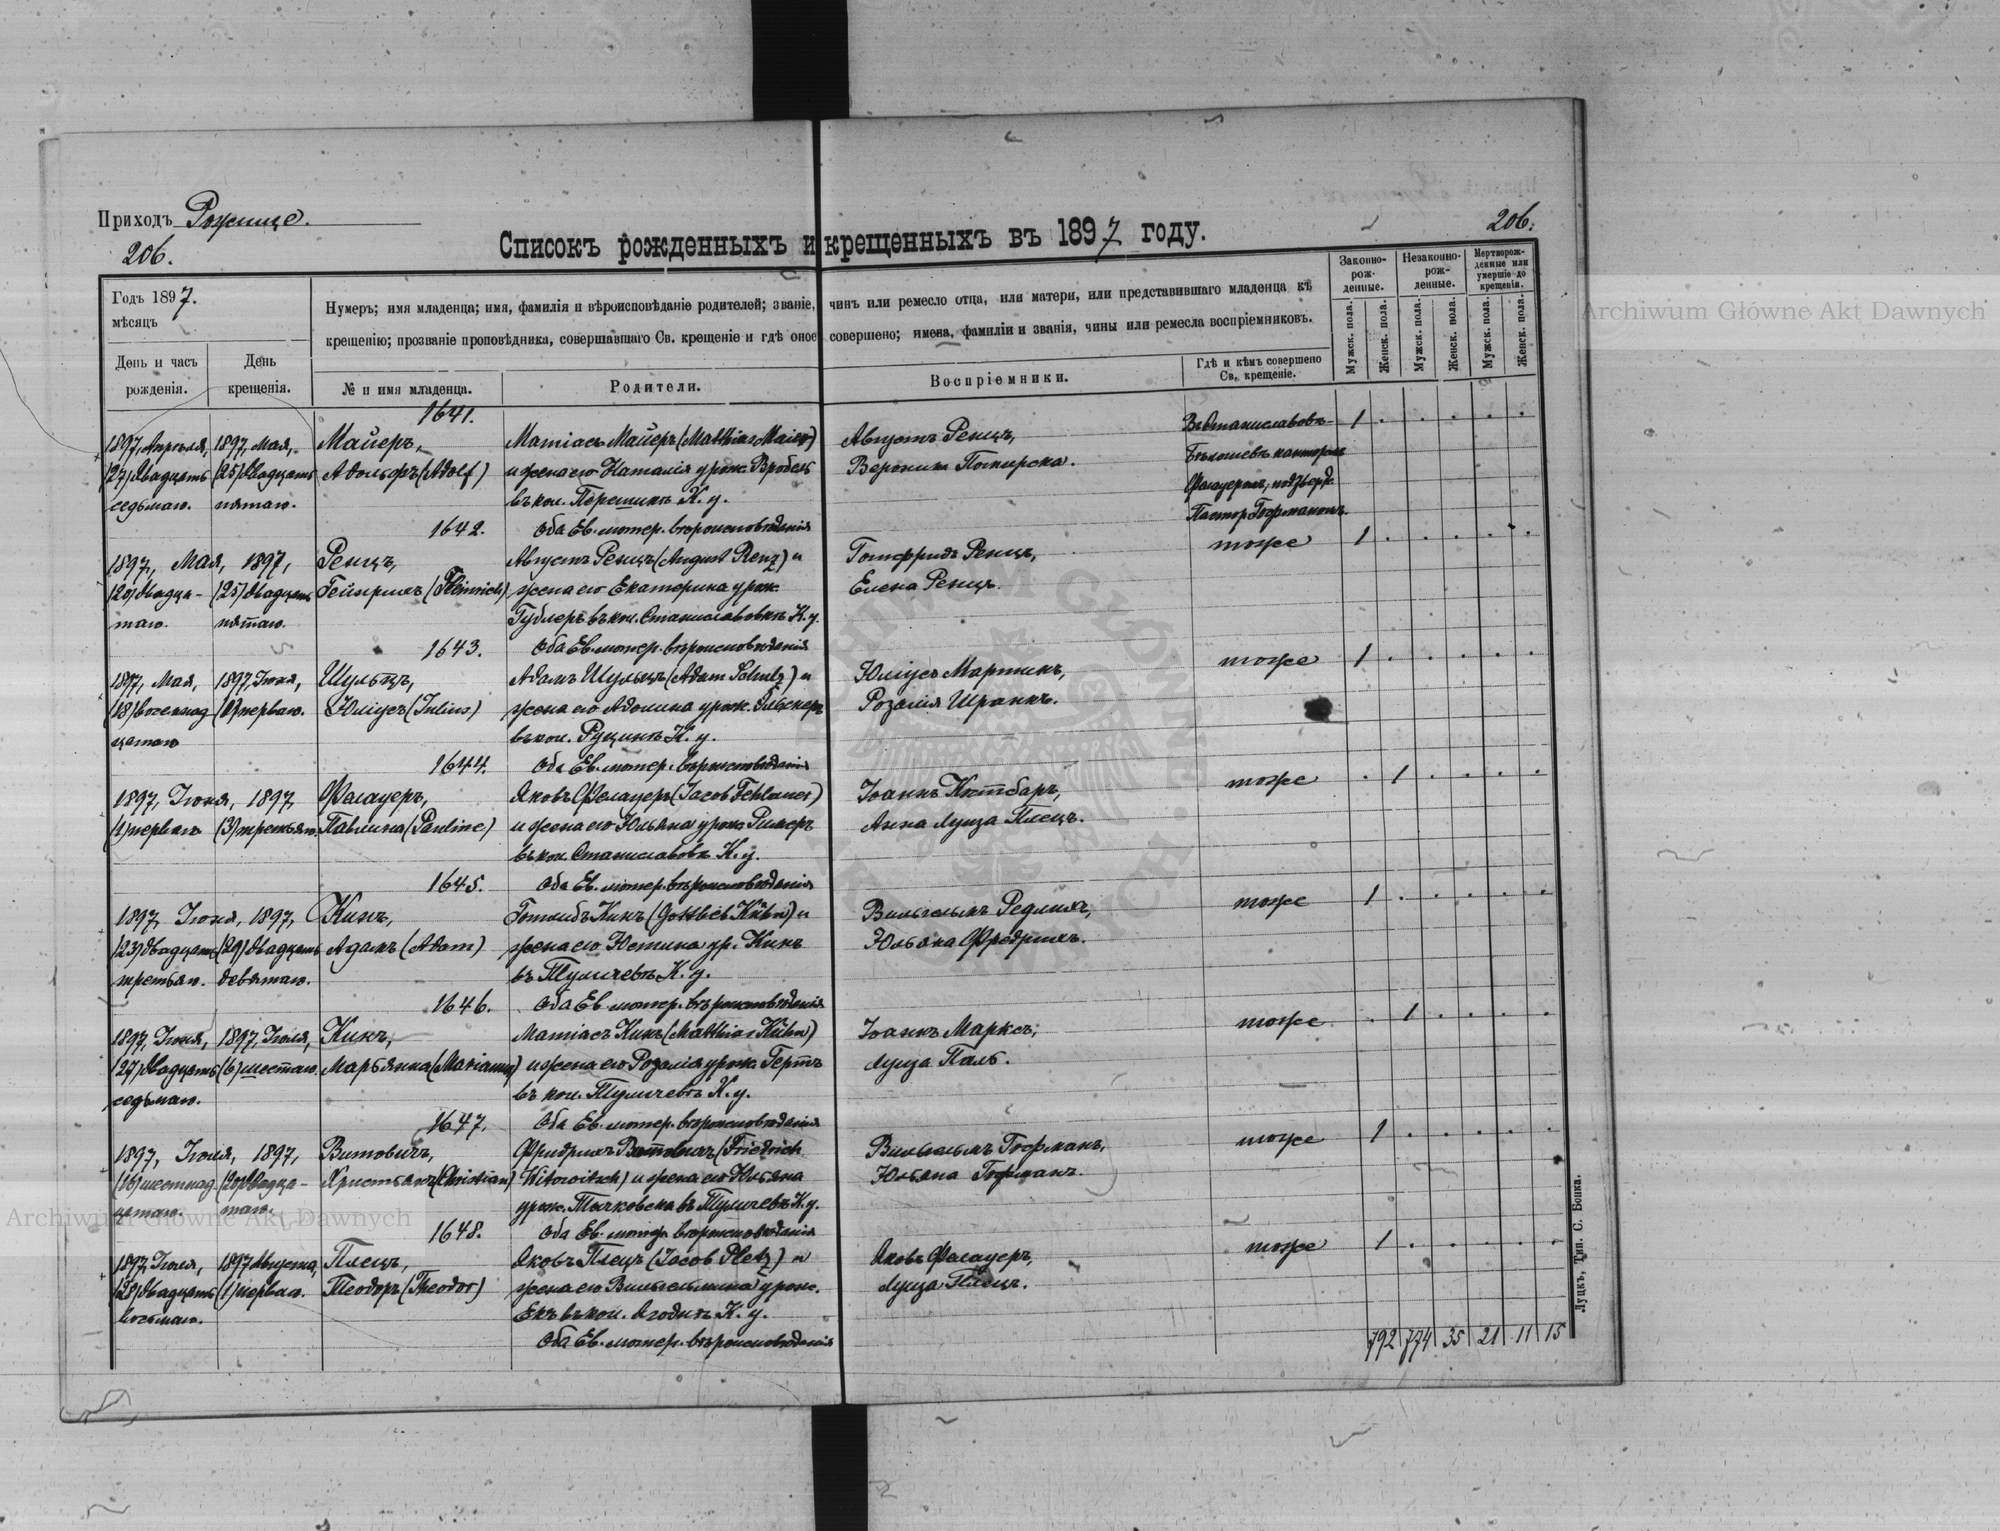 Приходъ Рожище.
206.
206.
Списокъ рожденныхъ и крещенныхъ въ 1897 году.
Годъ 1897.
мѣсяцъ
День и часъ рожденія.
День крещенія.
Нумеръ; имя младенца; имя, фамилія и вѣроисповѣданіе родителей; званіе, чинъ или ремесло отца, или матери, или представившаго младенца къ
крещенію; прозваніе проповѣдника, совершавшаго Св. крещеніе и гдѣ оное совершено; имена, фамиліи и званія, чины или ремесла воспріемниковъ.
№ и имя младенца.
Родители.
Воспріемники.
Гдѣ и кѣмъ совершено Св. крещеніе.
Законно-рож-денные.
Незаконно-рож-денные.
Мертворож-денные или умершіе до крещенія.
Мужск. пола.
Женск. пола.
Мужск. пола.
Женск. пола.
Мужск. пола.
Женск. пола.
1641.
1897, Апрѣля, 1897, Мая, Майеръ, Матіасъ Майеръ (Matthias Maier) Августъ Ренцъ, 1
(27) двадцать (25) двадцать Адольфъ (Adolf) и жена его Наталія урож. Вробель Вероника
седьмаго. пятаго. въ кол. К. у.
Пасторъ Гофманомъ
1642. Оба Ев.-лютер. вѣроисповѣданія
1897, Мая, 1897, Ренцъ, Августъ Ренцъ (August Renz) и Готфридъ Ренцъ, тоже 1
(20) двадца- (25) двадцать Гейнрихъ (Heinrich) жена его Екатерина урож. Елена Ренцъ.
таго. пятаго. Гублеръ въ кол. Станиславовкѣ К. у.
1643. Оба Ев.-лютер. вѣроисповѣданія
1897, Мая, 1897, Іюня, Шульцъ, Адамъ Шульцъ (Adam Schulz) и Юліусъ Мартинъ, тоже 1
(18) восемнад (1) перваго. Юліусъ (Julius) жена его урож. Розалія Шранкъ.
цатаго въ кол. К. у.
1644. Оба Ев.-лютер. вѣроисповѣданія
1897, Іюня, 1897, Фелауеръ, Яковъ Фелауеръ (Jacob Fehlauer) Іоаннъ тоже 1
(1) перваго (3) третьяго. Павлина (Pauline) и жена его Юльяна урож. Анна Луиза Плецъ.
въ кол. Станиславовк. К. у.
1645. Оба Ев.-лютер. вѣроисповѣданія
1897, Іюня, 1897, Кинъ, Готлибъ Кинъ (Gottlieb Kühn) и Вильгельмъ Редлихъ, тоже 1
(23) двадцать (29) двадцать Адамъ (Adam) жена его Юстина ур. Кинъ Юльяна Фридрихъ.
третьяго. девятаго. въ Туличевѣ К. у.
1646. Оба Ев.-лютер. вѣроисповѣданія
1897, Іюня, 1897, Іюля, Кинъ, Матіасъ Кинъ (Matthias Kühn) Іоаннъ Марксъ, тоже 1
(27) двадцать (6) шестаго. Марьянна (Marianna) и жена его Розалія урож. Гертъ Луиза Паль.
седьмаго. въ кол. Туличевѣ К. у.
1647. Оба Ев.-лютер. вѣроисповѣданія
1897, Іюля, 1897, Витовичъ, Фридрихъ Витовичъ (Friedrich Вильгельмъ Гофманъ, тоже 1
(16) шестнад (20) двадца- Христьянъ (Christian) Witowitsch) и жена его Юльяна Юльяна Гофманъ.
цатаго. таго. урож. въ Туличевѣ К. у.
1648. Оба Ев.-лютер. вѣроисповѣданія
1897, Іюля, 1897 Августа, Плецъ, Яковъ Плецъ (Jacob Pletz) и Яковъ Фелауеръ, тоже 1
(28) двадцать (1) перваго. Теодоръ (Theodor) жена его Вильгельмина урож. Луиза Плецъ.
восьмаго. въ кол. Ягодинъ К. у.
Оба Ев.-лютер. вѣроисповѣданія
792 774 35 21 11 15
Луцкъ, Тип. С. Бонка.
Archiwum Główne Akt Dawnych
Archiwum Główne Akt Dawnych